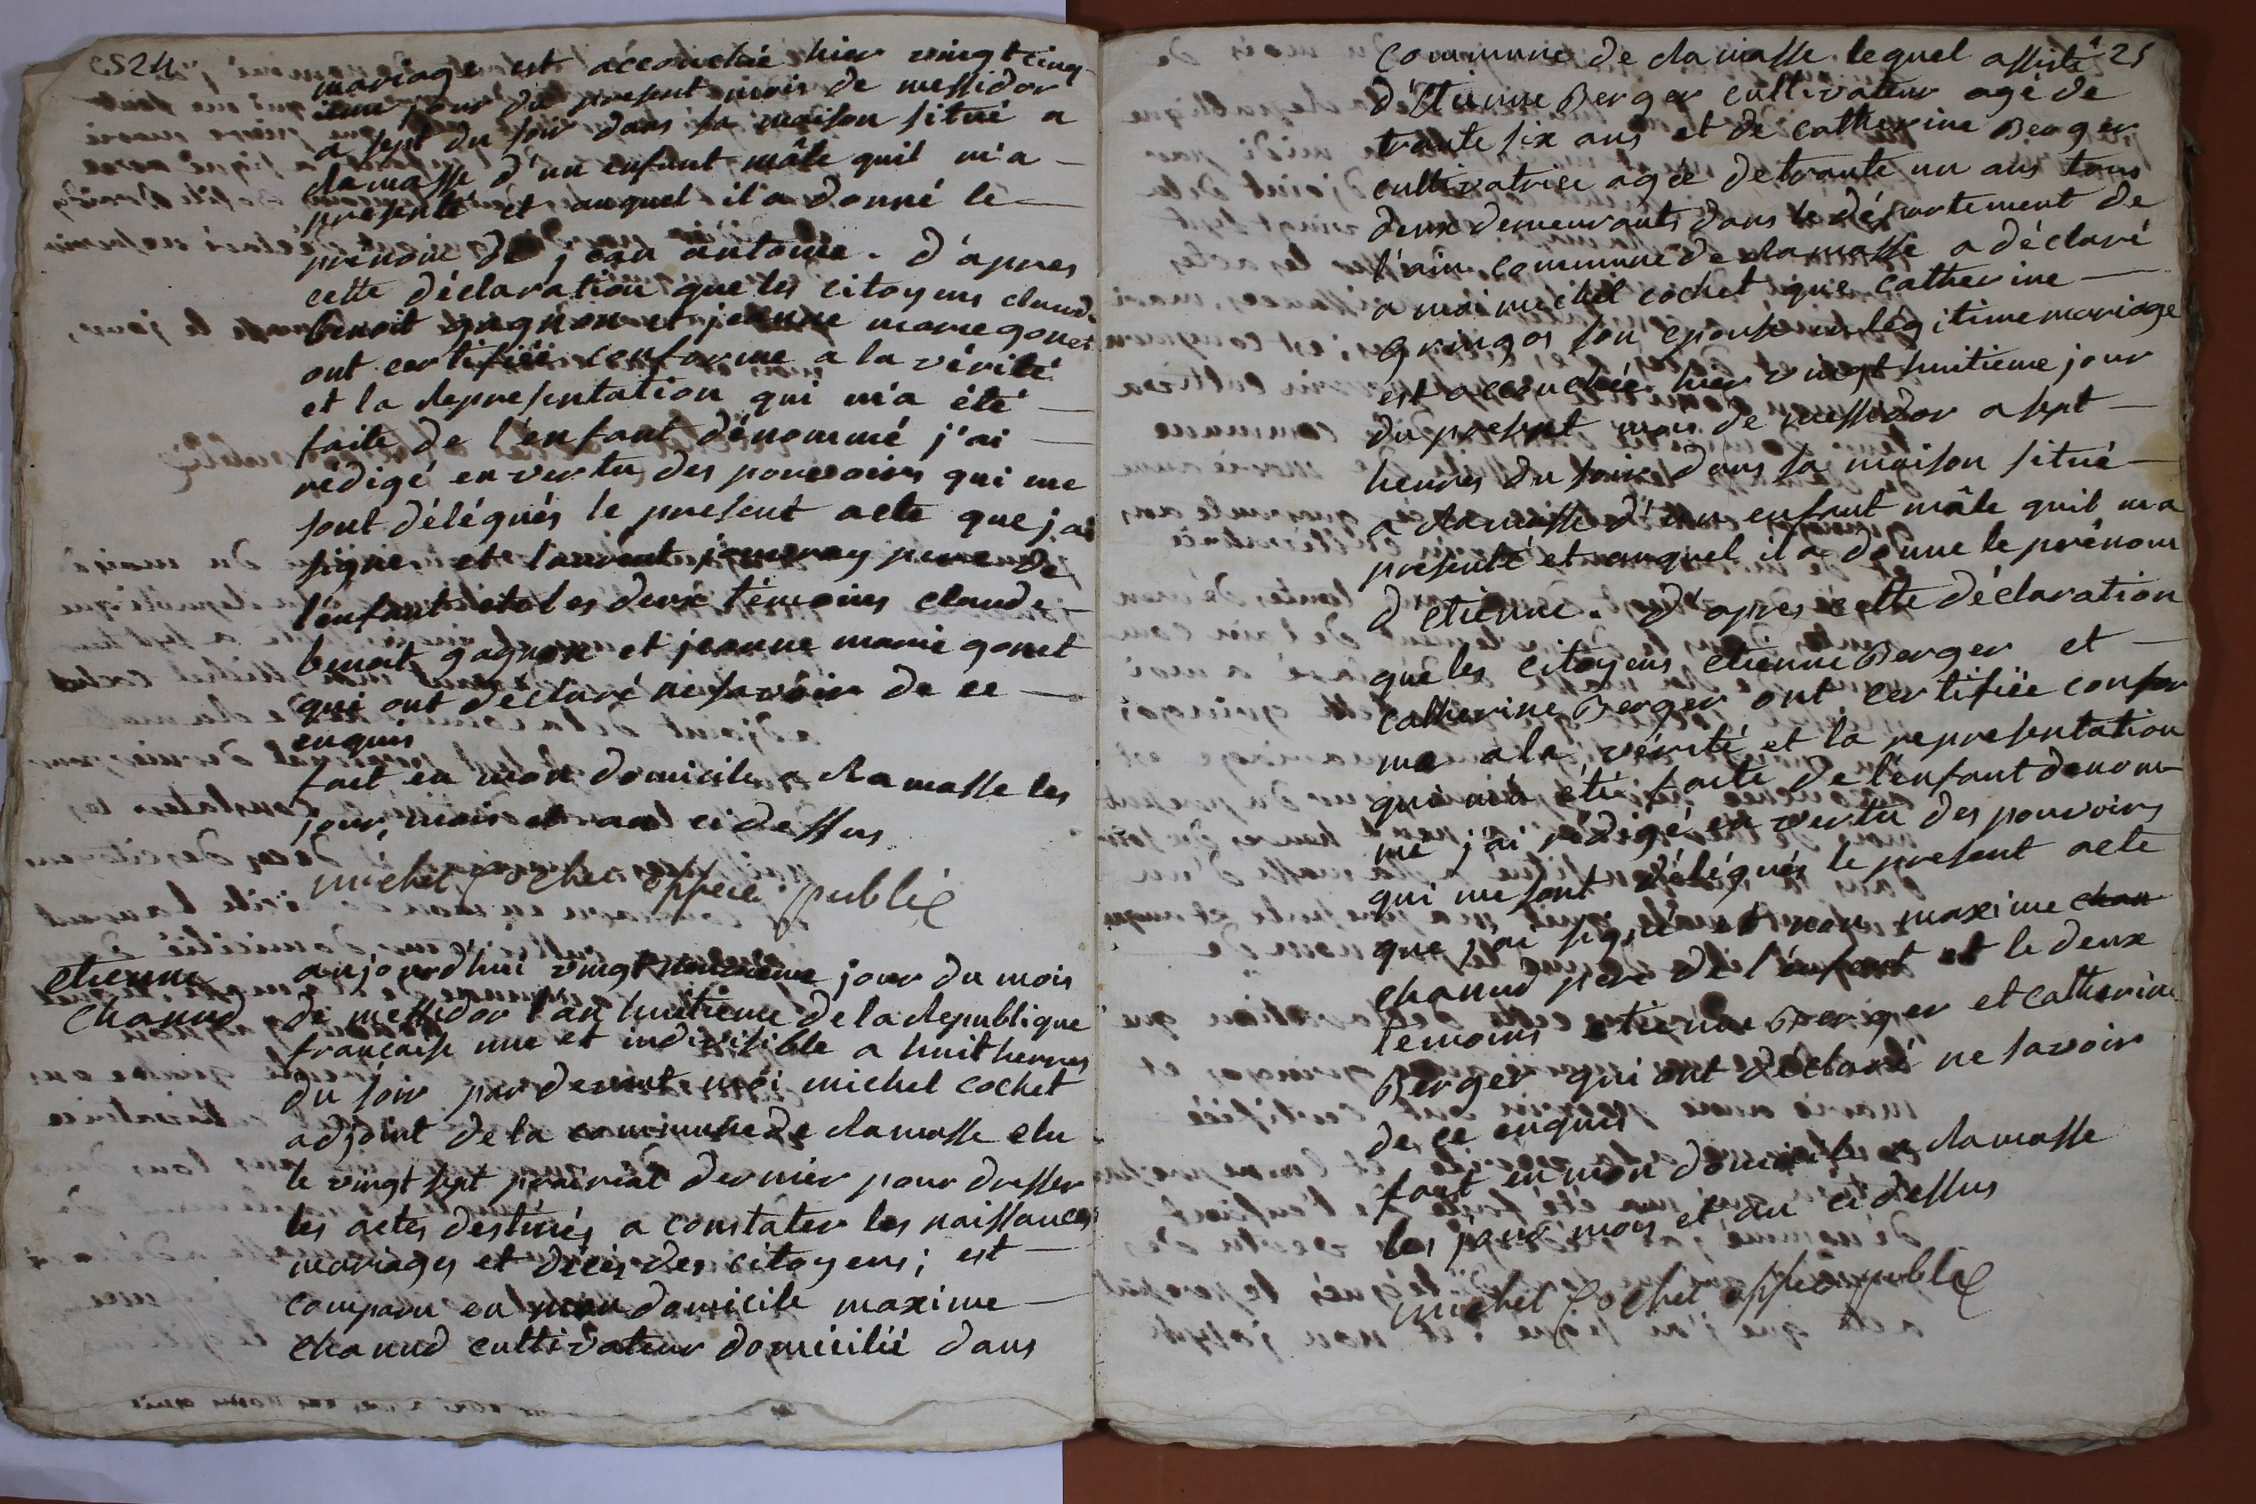 24
mariage est accouchée hier vingt cinq
ieme jour du present mois de messidor
a sept du soir dans sa maison situé a
ramasse d'un enfant mâle quil m'a
presenté et auquel il a donné le
prenom de jean antoine. d'apres
cette déclaration que les citoyens claude
benoit gagnon et jeanne marie gonet
ont certifiée conforme a la vérité
et la representation qui m'a été
faite de l'enfant dénommé j'ai
redigé en vertu des pouvoirs qui me
sont délégués le present acte que j'ai
signé et laurent pere de
l'enfant et les deux témoins claude
benoit gagnon et jeanne marie gonet
qui ont déclaré ne savoir de ce
enquis
fait en mon domicile a Ramasse les
jour, mois et an ci dessus
michel Cochet officie publie
etienne
Chanud
aujourdhui vingt neuvieme jour du mois
de messidor l'an huitieme de la Republique
francaise une et indivisible a huit heures
du soir par devant moi michel cochet
adjoint de la commune de Ramasse elu
le vingt sept prairial dernier pour dresser
les actes destinés a constater les naissances
mariages et décès des citoyens; est
comparu en mon domicile maxime
chanud cultivateur domicilié dans
25
commune de Ramasse lequel assisté
d'Etienne Berger cultivateur agé de
trante six ans et de catherine Berger
cultivatrice agée de trante un ans tous
deux demeurants dans le département de
l'ain commune de Ramasse a déclaré
a moi michel cochet que catherine
Gringos son epouse en légitime mariage
est accouchée hier vingt huitieme jour
du present mois de messidor a sept
heures du soir dans sa maison situé
a Ramasse d'un enfant mâle quil ma
presenté et auquel il a donne le prénom
d'etienne. d'apres cette déclaration
que les citoyens etienne Berger et
catherine Berger ont certifiée confor
me a la vérité et la representation
qui m'a été faite de l'enfant dénom
mé j'ai rédigé en vertu des pouvoirs
qui me sont délégués le present acte
que j'ai signé et non maxime chan
chanud pere de l'enfant et le deux
temoins etienne Berger et catherine
Berger qui ont déclaré ne savoir
de ce enquis
fait en mon domicile a Ramasse
les jour mois et an ci dessus
michel Cochet officie publie